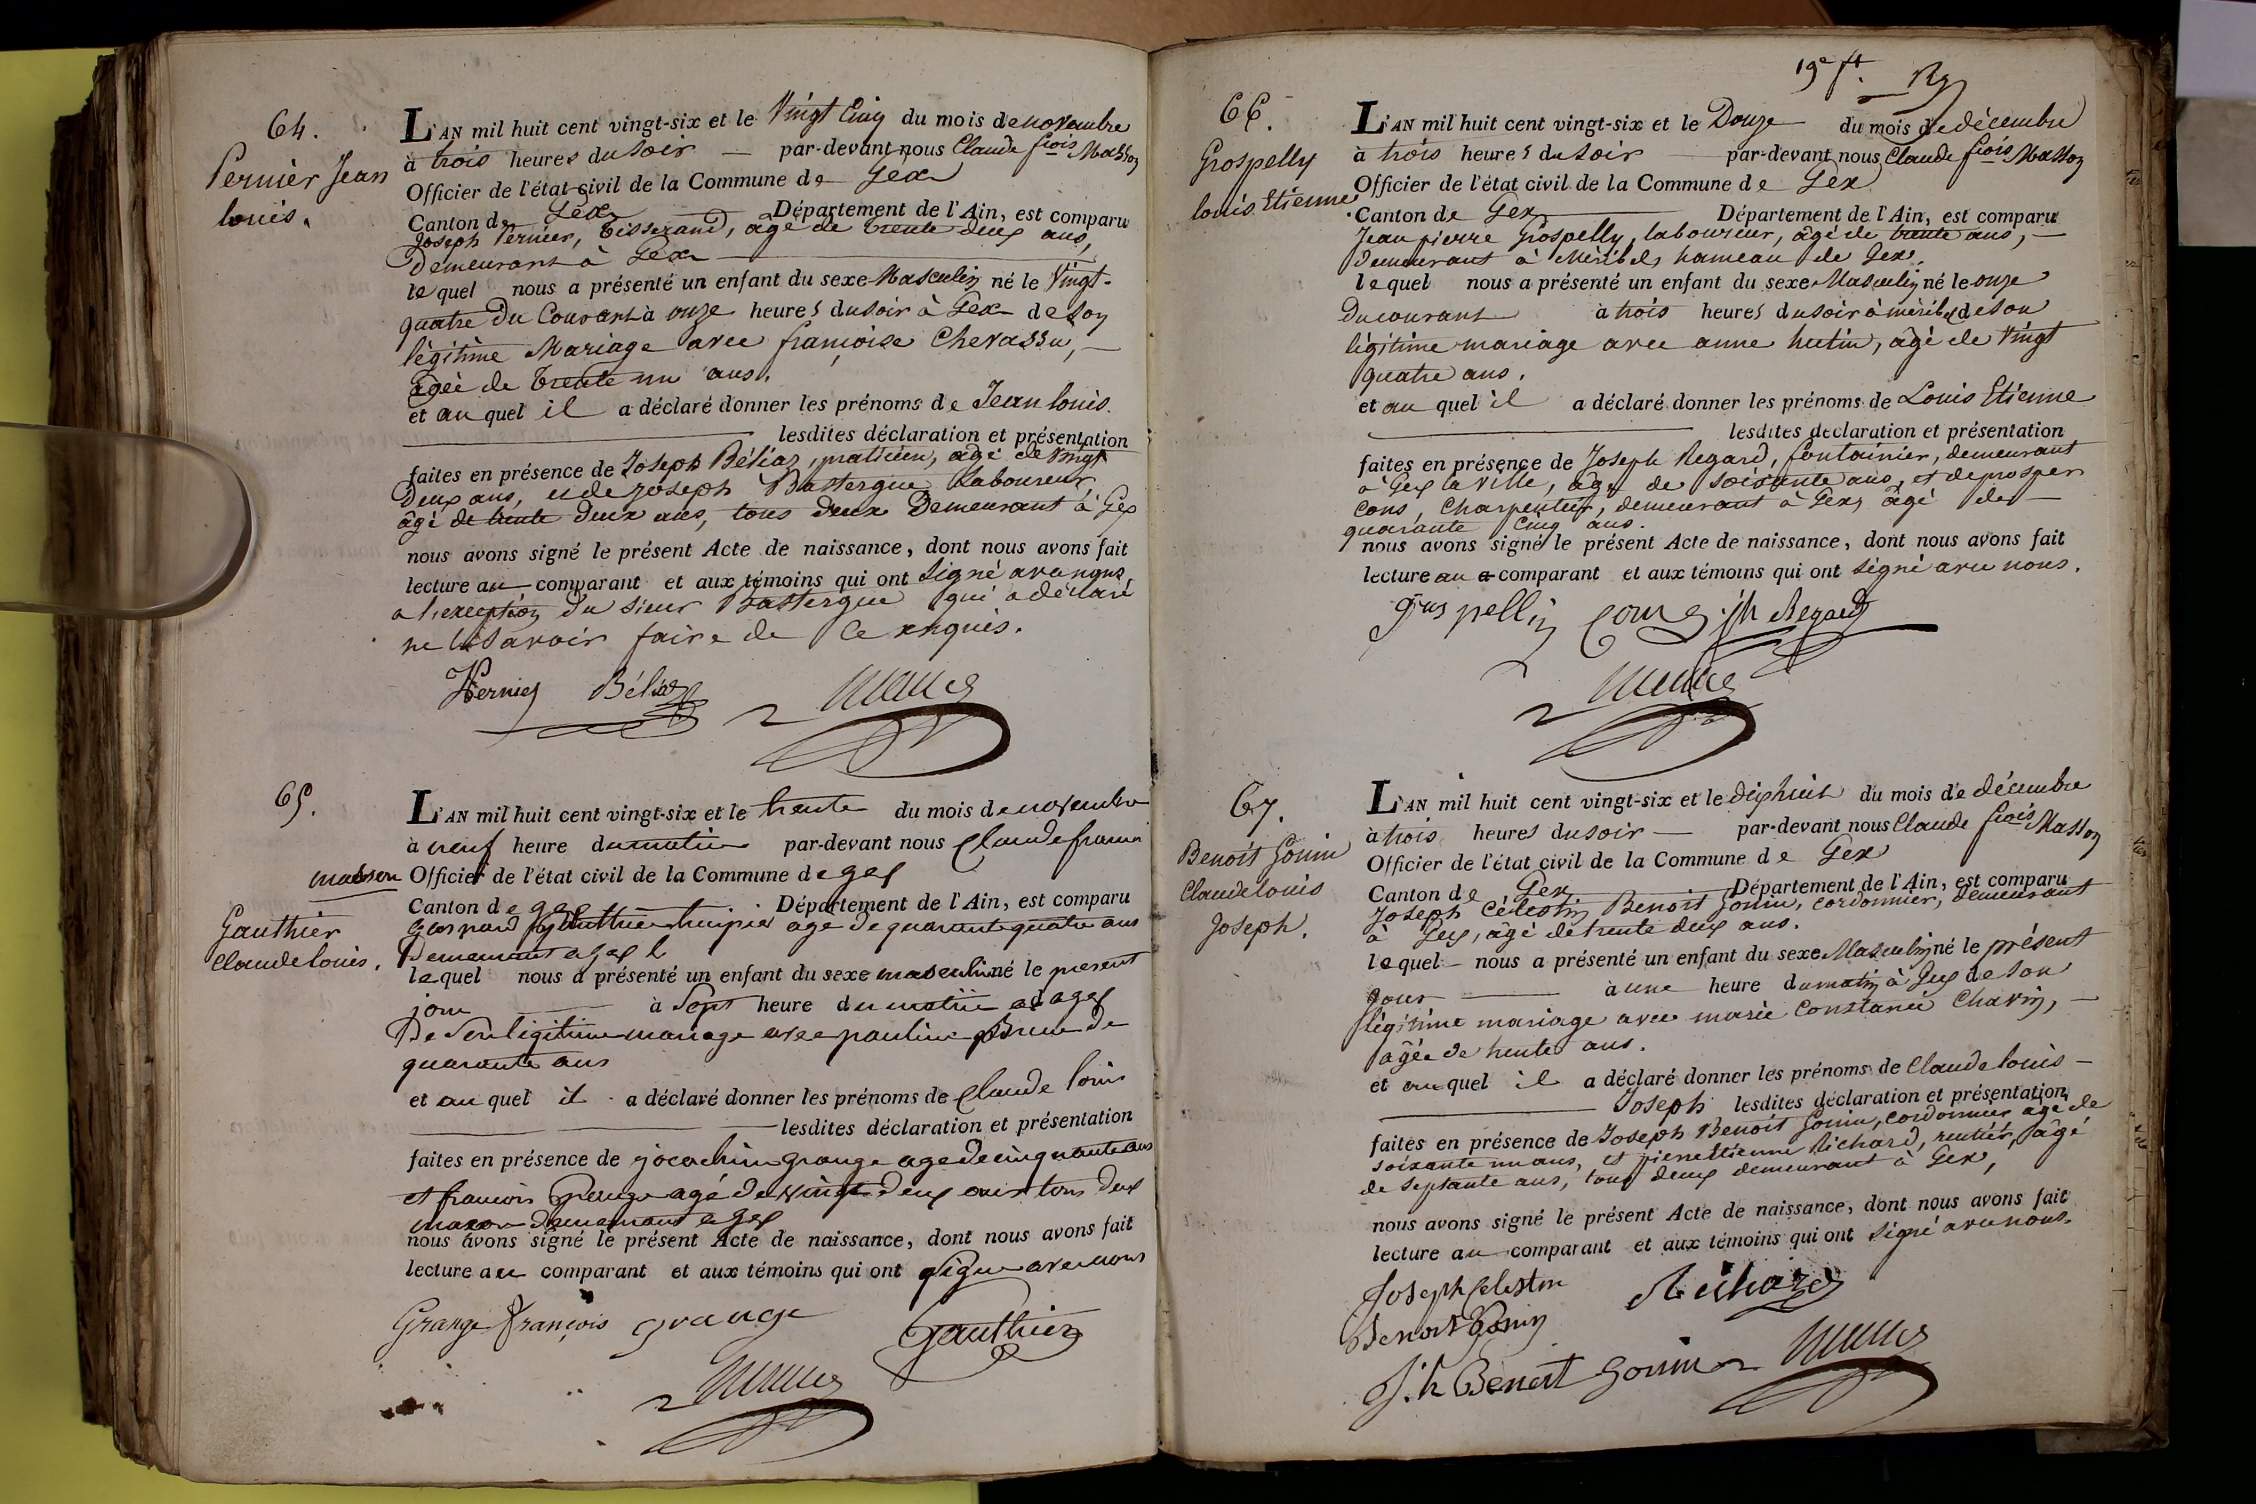 64.
Pernier Jean
louis.
L'AN mil huit cent vingt-six et le Vingt Cinq du mois de novembre
à trois heures du soir par-devant nous Claude fcois Masson
Officier de l'état civil de la Commune de Gex
Canton de Gex Département de l'Ain, est comparu
Joseph Pernier, tisserand, âgé de trente deux ans,
Demeurant à Gex
lequel nous a présenté un enfant du sexe Masculin né le Vingt-
quatre du Courant à onze heures du soir à Gex de son
légitime Mariage avec françoise Chevassu,
âgée de trente un ans.
et au quel il a déclaré donner les prénoms de Jean louis.
lesdites déclaration et présentation
faites en présence de Joseph Béliaz, praticien, âgé de Vingt
Deux ans, et de joseph Bastergue Laboureur
âgé de trente deux ans, tous deux Demeurant à Gex
nous avons signé le présent Acte de naissance, dont nous avons fait
lecture au comparant et aux témoins qui ont signé avec nous
a l'exception du sieur Bastergue qui a déclaré
ne le savoir faire de ce enquis.
Pernier Béliaz
65.
L'AN mil huit cent vingt-six et le trente du mois de novembre
à neuf heure du matin par-devant nous Claude francoi
masson Officier de l'état civil de la Commune de gex
Canton de gex Département de l'Ain, est comparu
Gauthier
Claude louis.
Gaspard gauthier age de quarante quatre ans
Demeurant a gex
lequel nous a présenté un enfant du sexe masculin né le present
jour à Sept heure du matin a gex
De Son legitime mariage avec pauline de
quarante ans
et au quel il a déclaré donner les prénoms de Claude louis
lesdites déclaration et présentation
faites en présence de jocachim grange age de cinquante ans
et francois grange agé de vingt deux ans tous deux
macon demeurant a gex
nous avons signé le présent Acte de naissance, dont nous avons fait
lecture au comparant et aux témoins qui ont signe avec nous
Grange françois grange Gauthier
19e ft.
66.
Grospelly
louis Etienne
L'AN mil huit cent vingt-six et le Douze du mois de décembre
à trois heures du soir par-devant nous Claude fcois Masson
Officier de l'état civil de la Commune de Gex
Canton de Gex Département de l'Ain, est comparu
Jean pierre Grospelly, laboureur, âgé de trente ans,
demeurant à Méribel, hameau de Gex.
lequel nous a présenté un enfant du sexe Masculin né le onze
du courant à trois heures du soir à méribel de son
légitime mariage avec anne hutin, âgé de Vingt
quatre ans.
et au quel il a déclaré donner les prénoms de Louis Etienne
lesdites declaration et présentation
faites en présence de Joseph Regard, fontainier, demeurant
à Gex la Ville, âgé de soixante ans, et de prosper
Cons, Charpentier, demeurant à Gex, âgé de
quarante Cinq ans.
nous avons signé le présent Acte de naissance, dont nous avons fait
lecture au comparant et aux témoins qui ont signé avec nous.
Gros pelly Cons jh Regard
67.
Benoit Gonin
Claude louis
Joseph.
L'AN mil huit cent vingt-six et le dixhuit du mois de décembre
à trois heures du soir par-devant nous Claude fcois Masson
Officier de l'état civil de la Commune de Gex
Canton de Gex Département de l'Ain, est comparu
Joseph Célestin Benoit Gonin, cordonnier, demeurant
à Gex, âgé de trente deux ans.
lequel nous a présenté un enfant du sexe Masculin né le présent
jour à une heure du matin à Gex de son
légitime mariage avec marie Constance Chavin,
âgée de trente ans.
et au quel il a déclaré donner les prénoms de Claude louis
Joseph lesdites déclaration et présentation
faites en présence de Joseph Benoit Gonin, cordonnier âgé de
soixante un ans, et pierre Etienne Richard, rentier, âgé
de septante ans, tous deux demeurant à Gex,
nous avons signé le présent Acte de naissance, dont nous avons fait
lecture au comparant et aux témoins qui ont signé avec nous.
Joseph Celestin
Benoit Gonin Richard
J.h Benoit Gonin